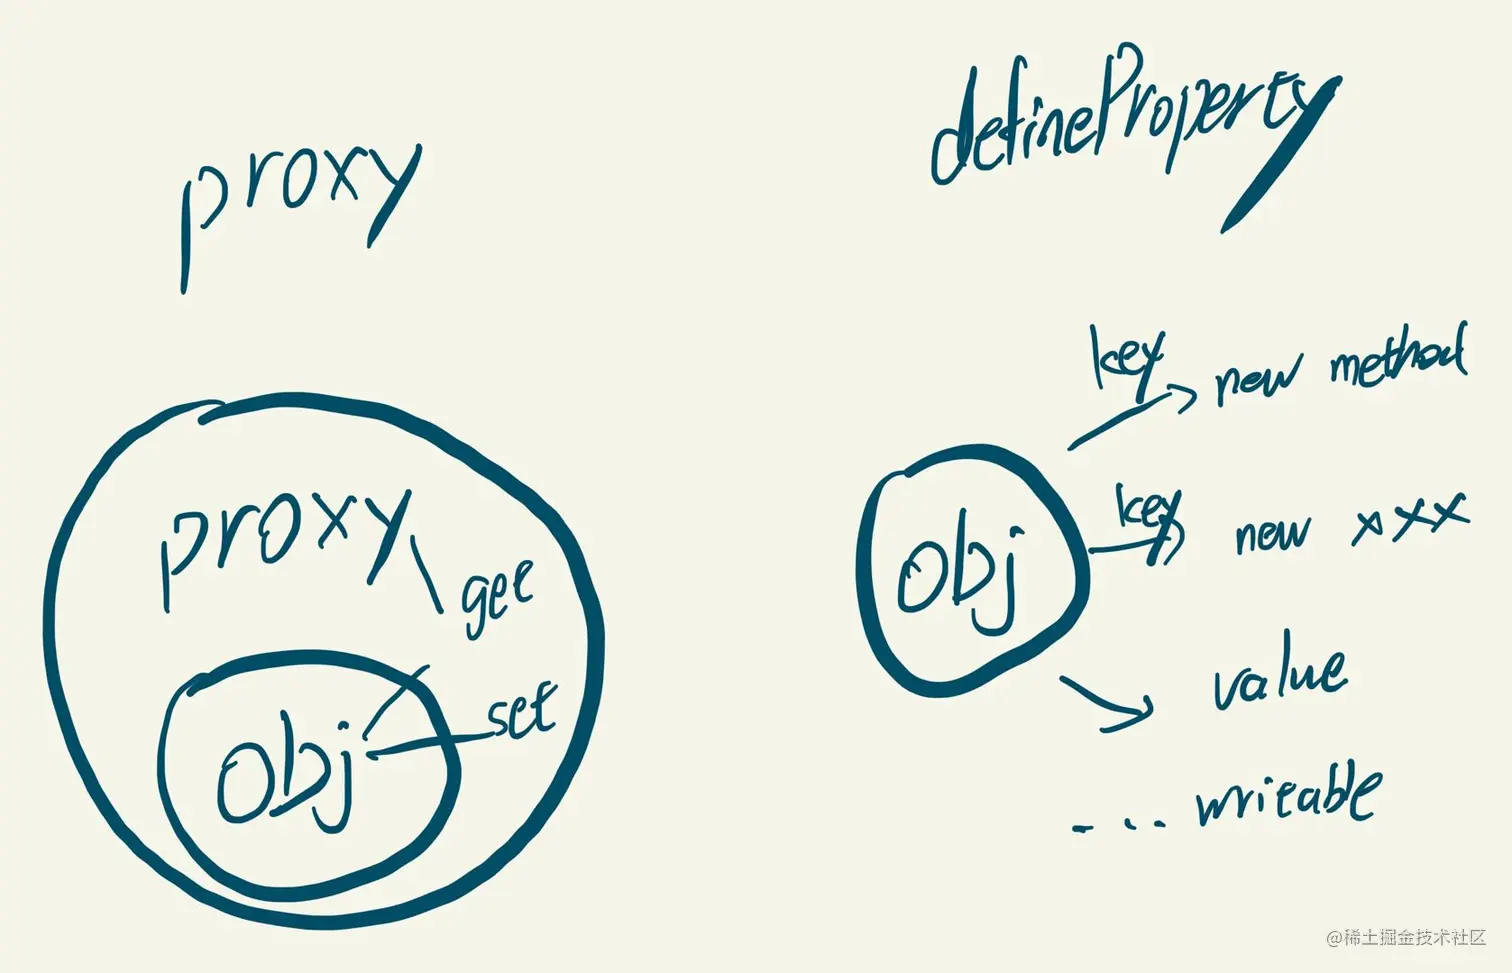 proxy
defineProperty
proxy
get
set
obj
key
new method
key
new xxx
obj
value
... writeable
@稀土掘金技术社区